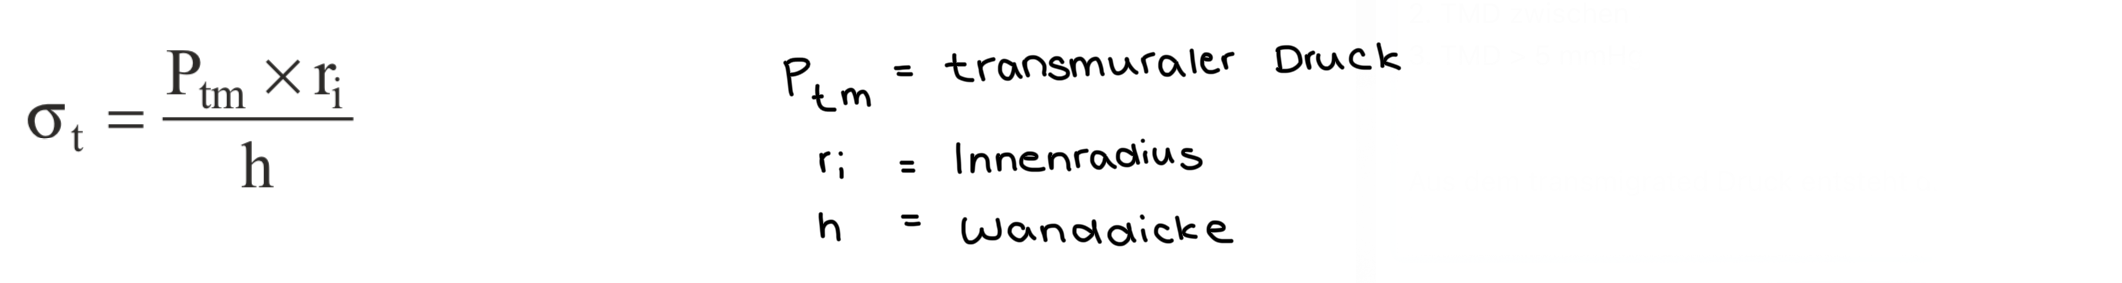 σₜ = (Pₜₘ × rᵢ) / h
Pₜₘ = transmuraler Druck
rᵢ = Innenradius
h = Wanddicke